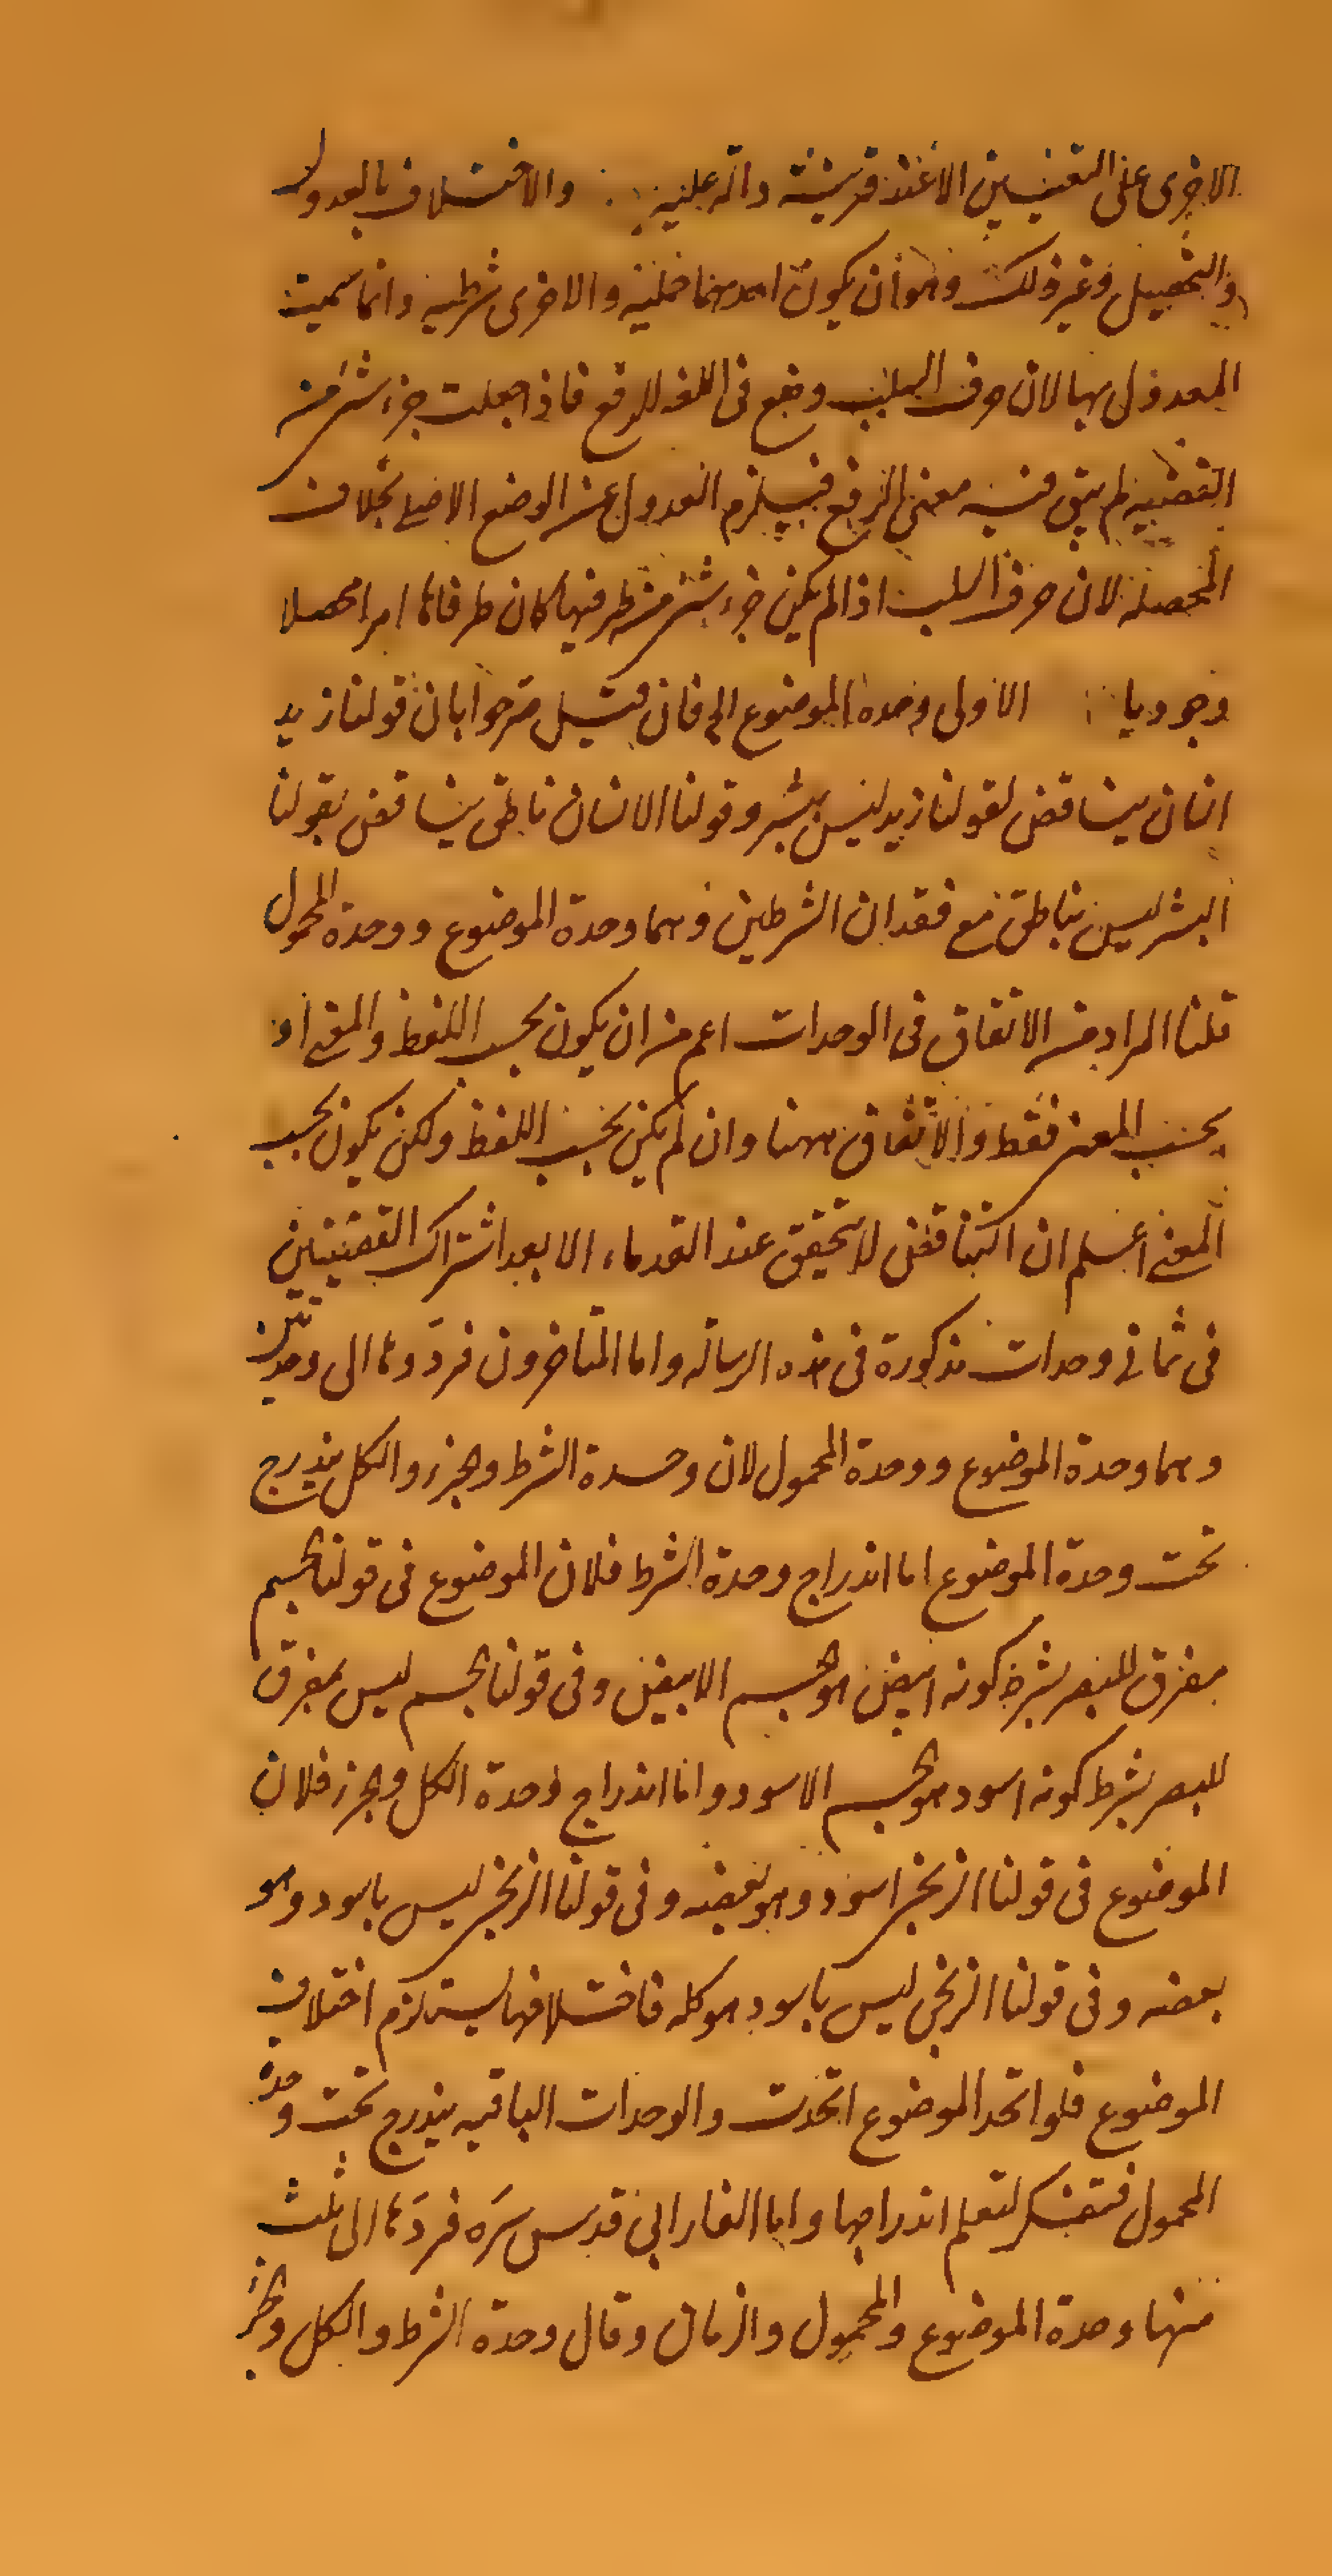 الاخرى على التعيين الا عند قرينة دالة عليه والاختلاف بالعدول
والتحصيل وغير ذلك وهو ان يكون احدهما حملية والاخرى شرطية وانما سميت
المعدول بها لان حرف السلب وضع فى اللغه للرفع فاذا جعلت جزء شئ من
القضيه لم يبق فيه معنى الرفع فيلزم العدول عن الوضع الاصلى بخلاف
المحصله لان حرف السلب اذا لم يكن جزء شئ من طرفيها كان طرفاها امرا محصلا
وجوديا الاولى وحدة الموضوع الى فان قيل صرحوا بان قولنا زيد
انسان يناقض لقولنا زيد ليس ببشر وقولنا الانسان ناطق يناقض بقولنا
البشر ليس بناطق مع فقدان الشرطين وهما وحدة الموضوع ووحدة المحمول
قلنا المراد من الاتفاق فى الوحدات اعم من ان يكون بحسب اللفظ والمعنى او
بحسب المعنى فقط والاتفاق ههنا وان لم يكن بحسب اللفظ ولكن يكون بحسب
المعنى اعلم ان التناقض لا يتحقق عند القدماء الا بعد اشتراك القضيتين
فى ثمانى وحدات مذكورة فى هذه الرسالة واما المتاخرون فردّوها الى وحدتين
وهما وحدة الموضوع ووحدة المحمول لان وحدة الشرط والجزء والكل يندرج
تحت وحدة الموضوع اما اندراج وحدة الشرط فلان الموضوع فى قولنا الجسم
مفرق للبصر بشرط كونه ابيض هو الجسم الابيض وفى قولنا الجسم ليس بمفرق
للبصر بشرط كونه اسود هو الجسم الاسود واما اندراج وحدة الكل والجزء فلان
الموضوع فى قولنا الزنجى اسود وهو بعضه وفى قولنا الزنجى ليس باسود وهو
بعضه وفى قولنا الزنجى ليس باسود هو كله فاختلافها يستلزم اختلاف
الموضوع فلو اتحد الموضوع اتحدت والوحدات الباقيه يندرج تحت وحدة
المحمول فتفكر لتعلم اندراجها واما الفارابى قدس سرّه فردّها الى ثلث
منها وحدة الموضوع والمحمول والزمان وقال وحدة الشرط والكل والجزء